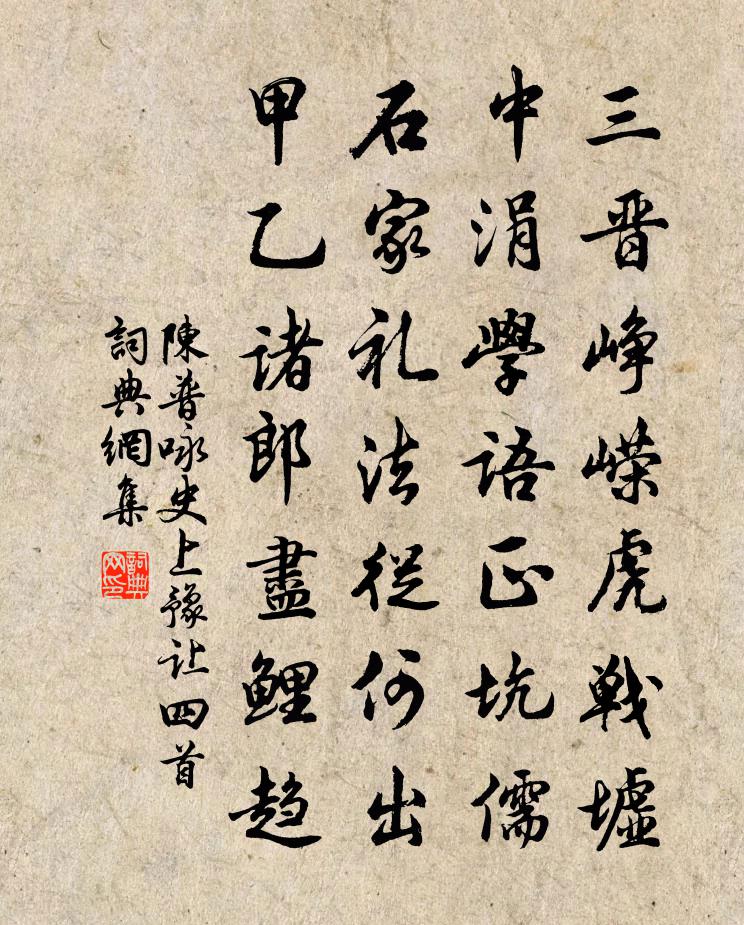 三晋峥嵘虎戦墟
中涓學语正坑儒
石家礼法從何出
甲乙诸郎盡鲤趋
陳普咏史上豫让四首
詞典網集
詞典網印